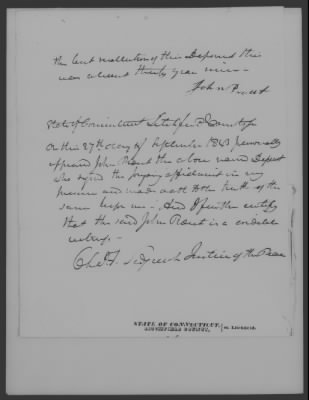 the best recollection of this Deponent this
was about thirty years since -
John Prout
State of Connecticut Litchfield County ss
On this 27th day of September 1843 personally
appeared John Prout the above named Deponent
who signed the foregoing affidavit in my
presence and made oath to the truth of the
same before me - And I further certify
that the said John Prout is a credible
witness -
Chas F. Sedgwick Justice of the Peace
STATE OF CONNECTICUT,
LITCHFIELD COUNTY, } ss. LICHFIELD.